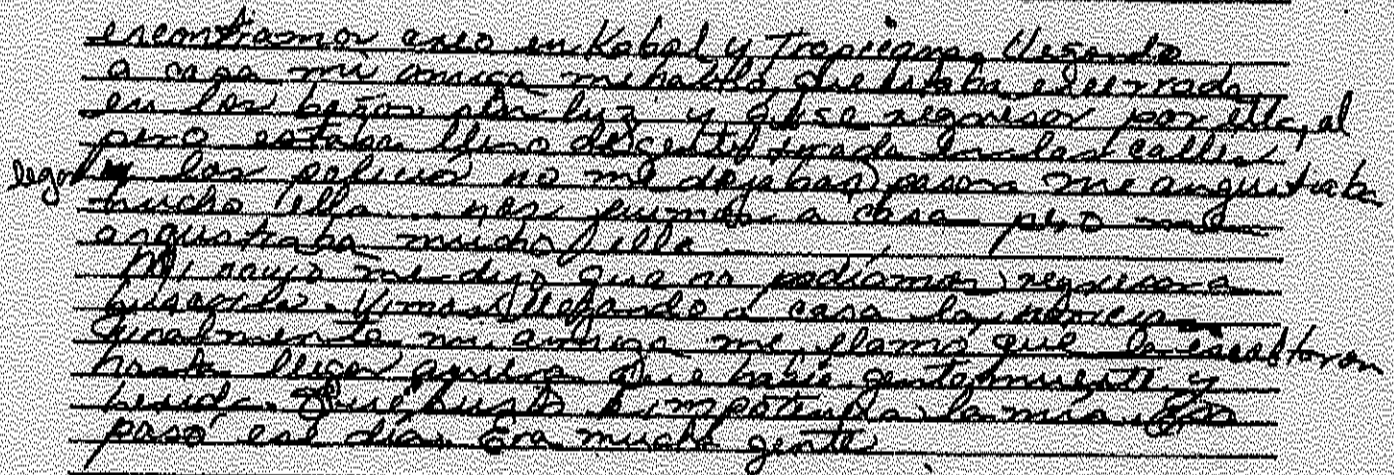 encontramos aseo en Kabal y Tropicana. Llegando
a casa mi amiga me hablo que estaba encerrada
en los baños sin luz y quise regresar por ella, al
pero estaba lleno de gente tirada en las calles
llegar y los policias no me dejaban pasar me angustiaba
mucho ella... nos fuimos a casa pero me
angustiaba mucho ella
Mi novio me dijo que no podiamos regresar a
buscarla. Vimos llegando a casa la noticia
finalmente mi amiga me llamo que la escoltaron
hasta llegar afuera que habia gente muerta y
herida. Que susto e impotencia la mia.
paso ese dia. Era mucha gente